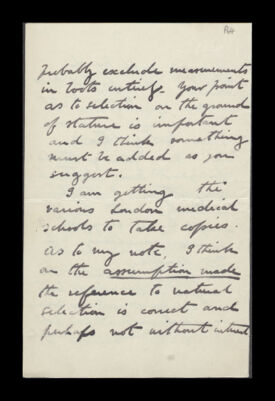 R4
probably exclude measurements
in boots entirely. Your point
as to selection on the ground
of stature is important
and I think something
must be added as you
suggest.
I am getting the
various London medical
schools to take copies.
As to my note, I think
on the assumption made
the reference to natural
selection is correct and
perhaps not without interest